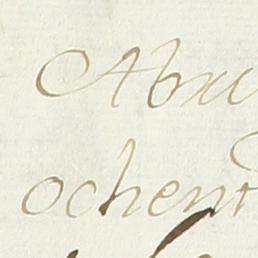 Abri
ochent